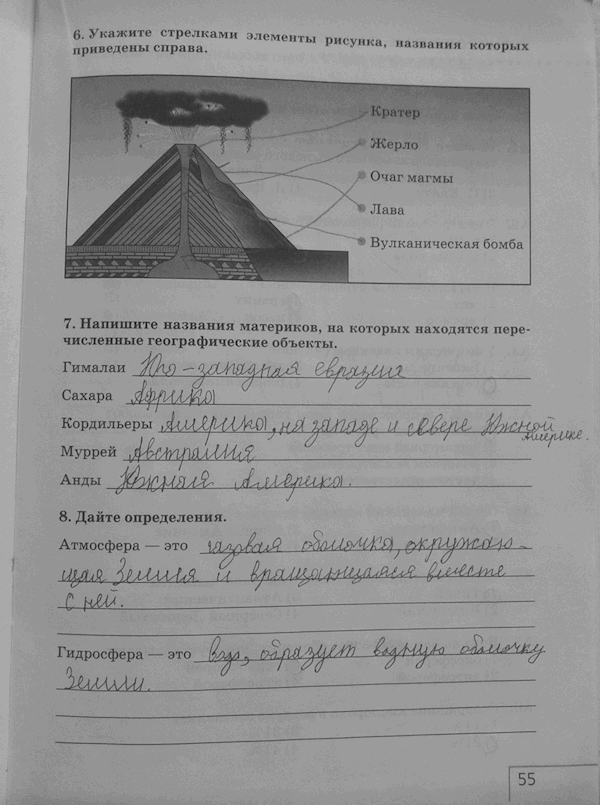 6. Укажите стрелками элементы рисунка, названия которых
приведены справа.
Кратер
Жерло
Очаг магмы
Лава
Вулканическая бомба
7. Напишите названия материков, на которых находятся пере-
численные географические объекты.
Гималаи Юго-западная евразия
Сахара Африка
Кордильеры Америка, на западе и севере Южной
Америке.
Муррей Австралия
Анды Южная Америка.
8. Дайте определения.
Атмосфера — это газовая оболочка, окружаю-
щая Земля и вращающаяся вместе
с ней.
Гидросфера — это образует водную оболочку
Земли.
55